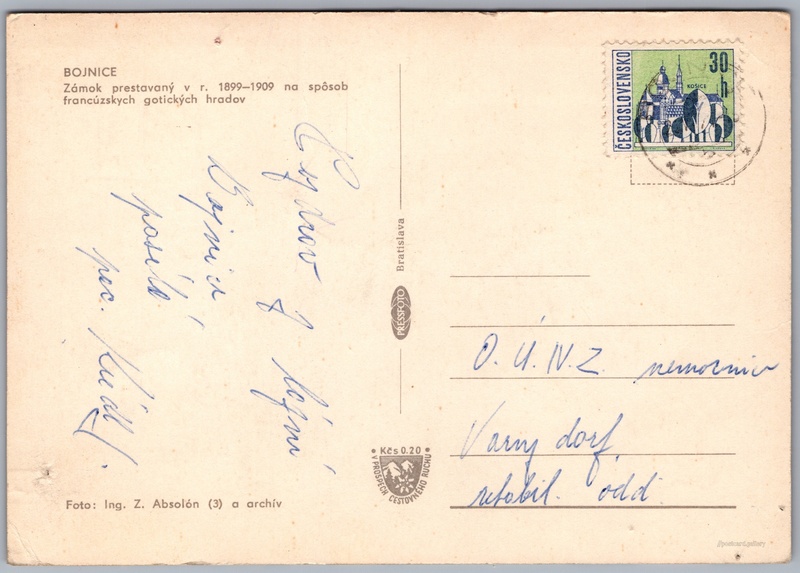 BOJNICE
Zámok prestavaný v r. 1899—1909 na spôsob
francúzskych gotických hradov
Pozdrav z lázní
Bojnice
posílá
pac. Kúdl J.
Foto: Ing. Z. Absolón (3) a archív
Bratislava
PRESSFOTO
Kčs 0.20
V PROSPECH CESTOVNÉHO RUCHU
ČESKOSLOVENSKO
30 h
KOŠICE
O. Ú. N. Z. nemocnice
Varnsdorf
rehabil. odd.